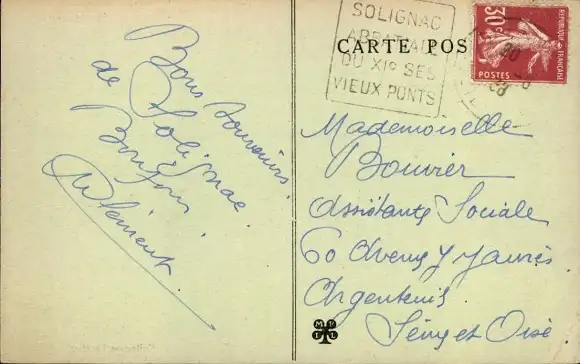 Bons souvenirs
de Solignac
Bonjour
Clément
SOLIGNAC
ABBATIALE
DU XIe SES
VIEUX PONTS
CARTE POS
30c
REPUBLIQUE FRANÇAISE
POSTES
Mademoiselle
Bouvier
Assistante Sociale
60 Avenue J Jaurès
Argenteuil
Seine et Oise